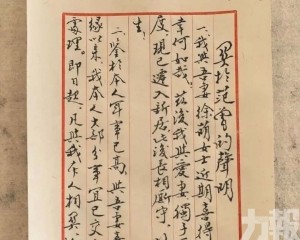 關於范曾的聲明
一、我與吾妻徐萌女士近期喜得
幸何如哉茲後我與愛妻獨子
度現已遷入新居以後長相廝守以
生
二、鑒於本人年事已高與吾妻
緣以來我本人大部分事宜已交
處理。即日起凡與我個人相關
力報